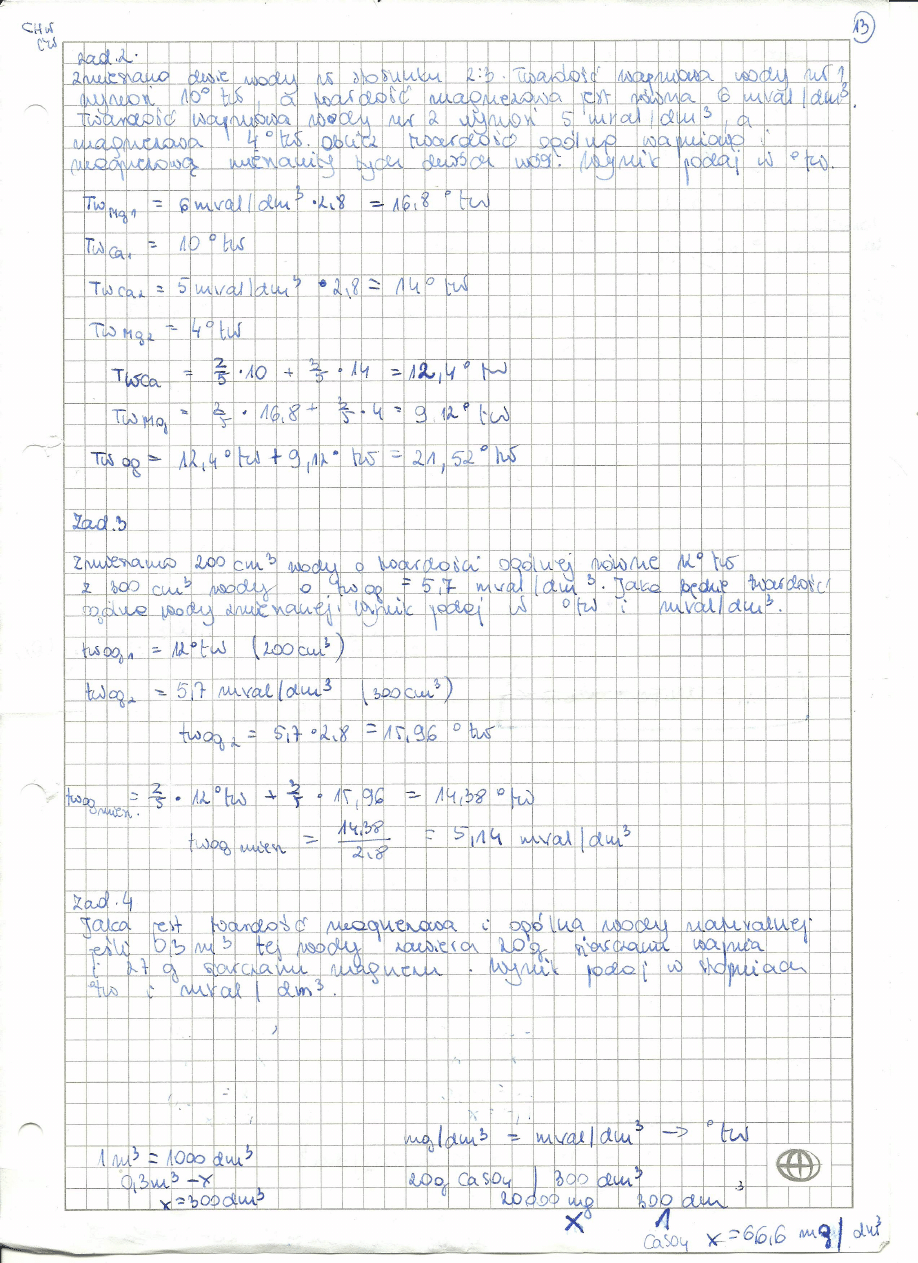 CHW
ćw
13
Zad.2.
Zmieszano dwie wody w stosunku 2:3. Twardość wapniowa wody nr 1
wynosi 10° tw, a twardość magnezowa jest równa 6 mval/dm³.
Twardość wapniowa wody nr 2 wynosi 5 mval/dm³, a
magnezowa 4° tw. Oblicz twardość ogólną wapniową i
magnezową mieszaniny tych dwóch wód. Wynik podaj w °tw.
TwMg1 = 6 mval/dm³ · 2,8 = 16,8 °tw
TwCa1 = 10 °tw
TwCa2 = 5 mval/dm³ · 2,8 = 14° tw
TwMg2 = 4° tw
TwCa = 2/5 · 10 + 3/5 · 14 = 12,4° tw
TwMg = 2/5 · 16,8 + 3/5 · 4 = 9,12° tw
Twog = 12,4° tw + 9,12° tw = 21,52° tw
Zad.3
Zmieszano 200 cm³ wody o twardości ogólnej równe 12° tw
z 300 cm³ wody o twog = 5,7 mval/dm³. Jaka będzie twardość
ogólna wody zmieszanej. Wynik podaj w °tw i mval/dm³.
twog1 = 12° tw (200 cm³)
twog2 = 5,7 mval/dm³ (300 cm³)
twog2 = 5,7 · 2,8 = 15,96 °tw
twog miesz. = 2/5 · 12° tw + 3/5 · 15,96 = 14,38 °tw
twog miesz = 14,38 / 2,8 = 5,14 mval/dm³
Zad.4
Jaka jest twardość magnezowa i ogólna wody naturalnej
jeśli 0,3 m³ tej wody zawiera 20g siarczanu wapnia
i 27 g siarczanu magnezu. Wynik podaj w stopniach
°tw i mval / dm³.
mg/dm³ = mval/dm³ -> °tw
1 m³ = 1000 dm³
0,3 m³ - x
x = 300 dm³
20g CaSO4 | 300 dm³
20000 mg 300 dm³
x 1
CaSO4 x = 66,6 mg / dm³